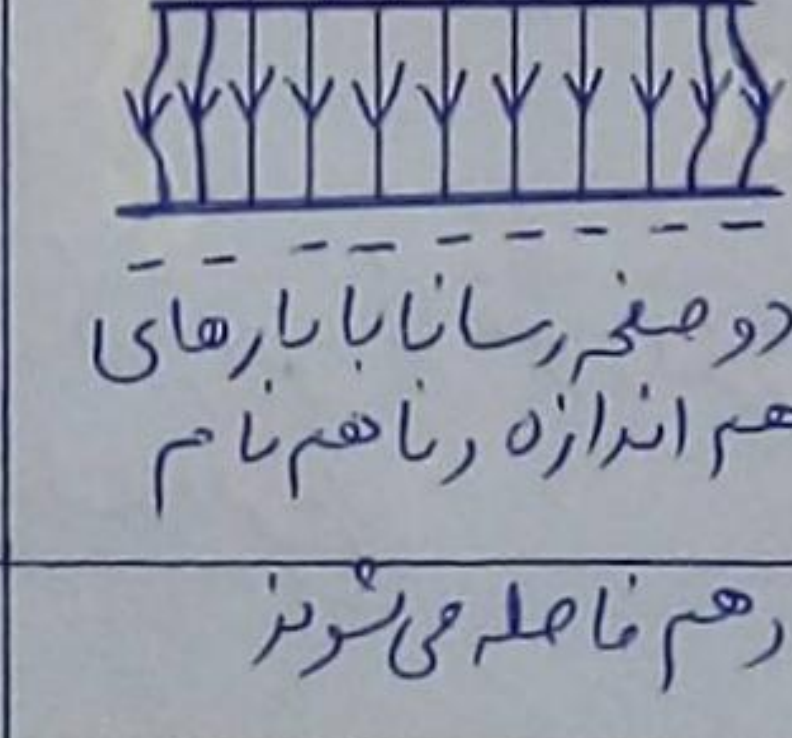 دو صفحه رسانا با بارهای
هم اندازه و ناهم نام
هم فاصله می‌شوند